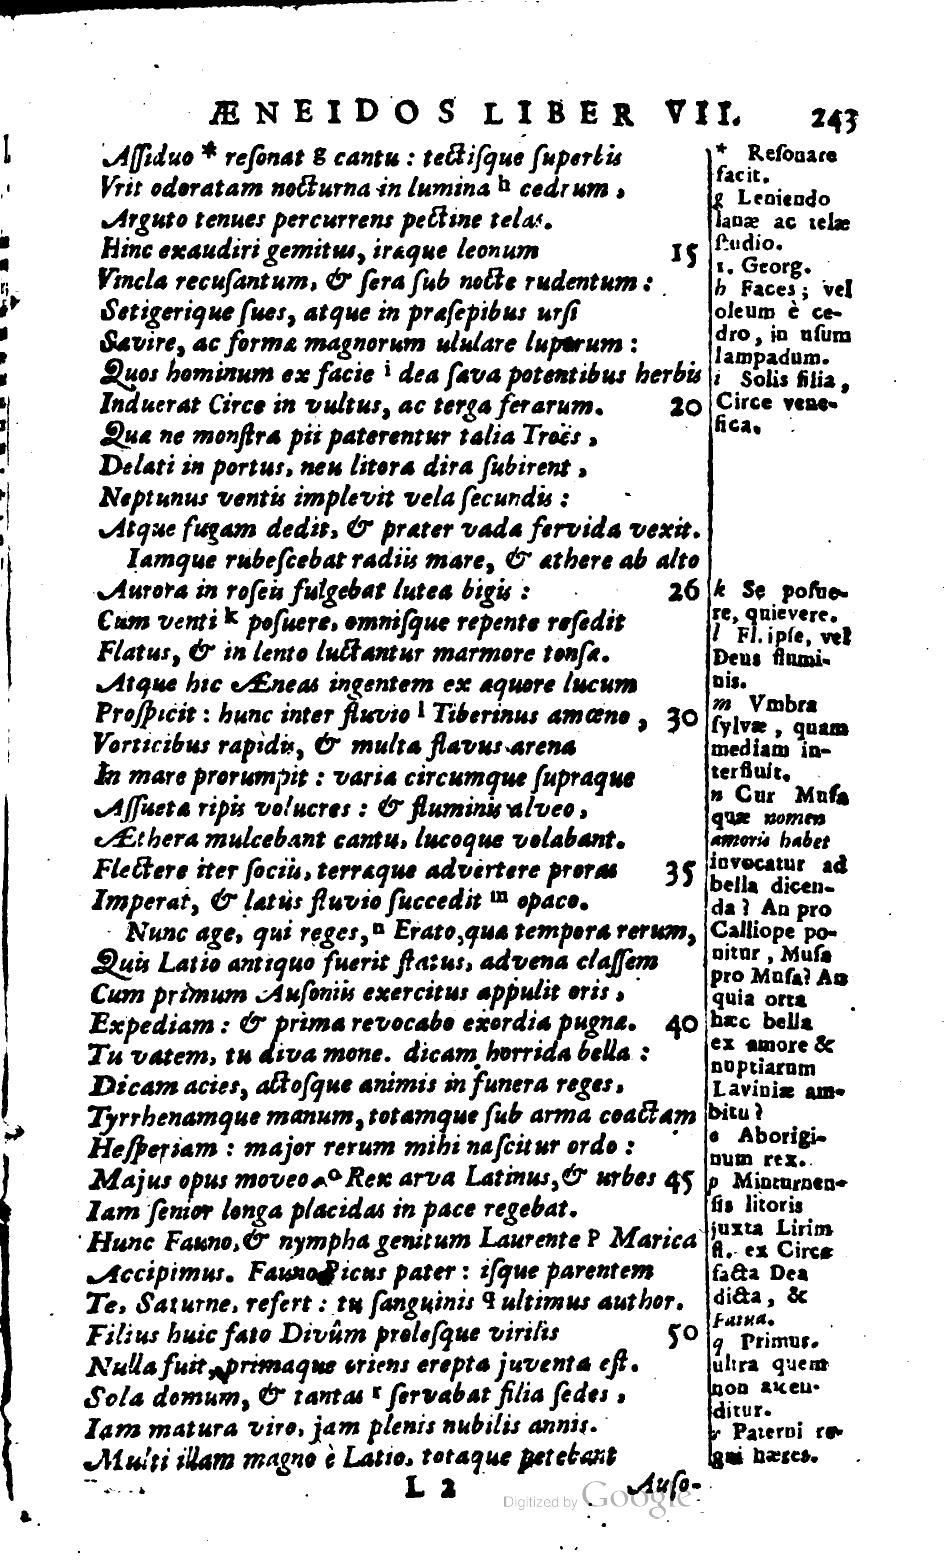 ÆNEIDOS LIBER VII. 243
Aſſiduo * reſonat g cantu : tectiſque ſuperbis
Vrit odoratam nocturna in lumina h cedrum,
Arguto tenues percurrens pectine telas.
Hinc exaudiri gemitus, iræque leonum 15
Vincla recuſantum, & ſera ſub nocte rudentum :
Setigerique ſues, atque in præſepibus urſi
Sævire, ac formæ magnorum ululare luporum :
Quos hominum ex facie i dea ſæva potentibus herbis
Induerat Circe in vultus, ac terga ferarum. 20
Quæ ne monſtra pii paterentur talia Troës,
Delati in portus, neu litora dira ſubirent,
Neptunus ventis implevit vela ſecundis :
Atque fugam dedit, & præter vada fervida vexit.
Iamque rubeſcebat radiis mare, & æthere ab alto
Aurora in roſeis fulgebat lutea bigis : 26
Cum venti k poſuere, omniſque repente reſedit
Flatus, & in lento luctantur marmore tonſæ.
Atque hic Æneas ingentem ex æquore lucum
Proſpicit : hunc inter fluvio l Tiberinus amœno, 30
Vorticibus rapidis, & multa flavus arena
In mare prorumpit : variæ circumque ſupraque
Aſſuetæ ripis volucres : & fluminis alveo,
Æthera mulcebant cantu, lucoque volabant.
Flectere iter ſociis, terræque advertere proras 35
Imperat, & lætus fluvio ſuccedit m opaco.
Nunc age, qui reges, n Erato, quæ tempora rerum,
Quis Latio antiquo fuerit ſtatus, advena claſſem
Cum primum Auſoniis exercitus appulit oris,
Expediam : & primæ revocabo exordia pugnæ. 40
Tu vatem, tu diva mone. dicam horrida bella :
Dicam acies, actoſque animis in funera reges,
Tyrrhenamque manum, totamque ſub arma coactam
Heſperiam : major rerum mihi naſcitur ordo :
Majus opus moveo. o Rex arva Latinus, & urbes 45
Iam ſenior longa placidas in pace regebat.
Hunc Fauno, & nympha genitum Laurente p Marica
Accipimus. Fauno Picus pater : iſque parentem
Te, Saturne, refert : tu ſanguinis q ultimus author.
Filius huic fato Divûm proleſque virilis 50
Nulla fuit, primaque oriens erepta juventa eſt.
Sola domum, & tantas r ſervabat filia ſedes,
Iam matura viro, jam plenis nubilis annis.
Multi illam magno è Latio, totaque petebant
L 2 Auſo-
* Reſonare
facit.
g Leniendo
lanæ ac telæ
ſtudio.
1. Georg.
h Faces; vel
oleum è ce-
dro, in uſum
lampadum.
i Solis filia,
Circe vene-
fica.
k Se poſue-
re, quievere.
l Fl. ipſe, vel
Deus flumi-
nis.
m Vmbra
ſylvæ, quam
mediam in-
terfluit.
n Cur Muſa
quæ nomen
amoris habet
invocatur ad
bella dicen-
da? An pro
Calliope po-
nitur, Muſa
pro Muſa? An
quia orta
hæc bella
ex amore &
nuptiarum
Laviniæ am-
bitu?
o Aborigi-
num rex.
p Minturnen-
ſis litoris
juxta Lirim
fl. ex Circe
facta Dea
dicta, &
Fatua.
q Primus.
ultra quem
non aſcen-
ditur.
r Paterni re-
gni hæres.
Digitized by Google